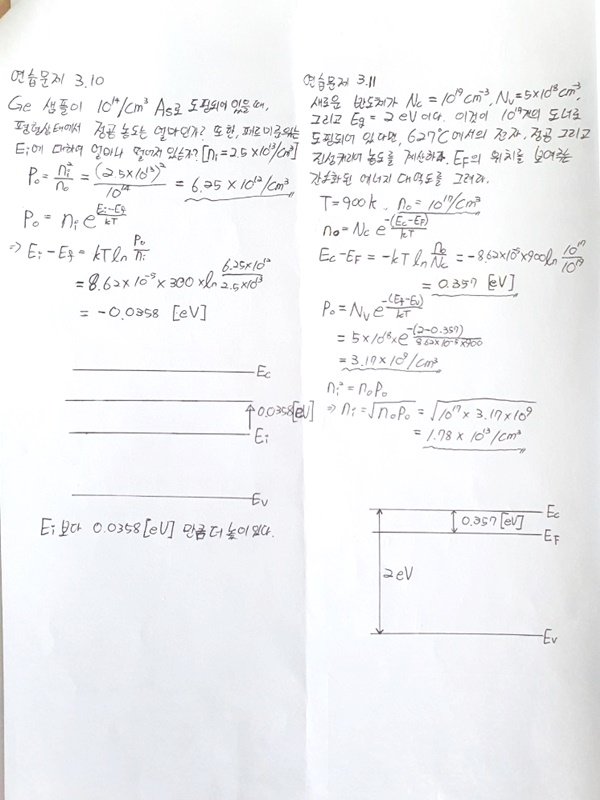 연습문제 3.10
Ge 샘플이 10¹⁴/cm³ As로 도핑되어 있을 때,
평형상태에서 정공 농도는 얼마인가? 또한, 페르미준위는
Ei에 대하여 얼마나 떨어져 있는가? [ni=2.5×10¹³/cm³]
P₀ = ni²/n₀ = (2.5×10¹³)²/10¹⁴ = 6.25×10¹²/cm³
P₀ = ni e^((Ei-Ef)/kT)
⇒ Ei-Ef = kT ln P₀/ni
= 8.62×10⁻⁵×300×ln (6.25×10¹²)/(2.5×10¹³)
= -0.0358 [eV]
Ec
0.0358[eV]
Ei
Ev
Ei 보다 0.0358[eV] 만큼 더 높이 있다.
연습문제 3.11
새로운 반도체가 Nc = 10¹⁹cm⁻³, Nv=5×10¹⁸cm⁻³,
그리고 Eg = 2eV 이다. 이것이 10¹⁷개의 도너로
도핑되어 있다면, 627℃에서의 전자, 정공 그리고
진성캐리어 농도를 계산하라, EF의 위치를 보여주는
간략화된 에너지 대역도를 그려라.
T=900k, n₀ = 10¹⁷/cm³
n₀ = Nc e^(-(Ec-EF)/kT)
Ec-EF = -kT ln n₀/Nc = -8.62×10⁻⁵×900 ln 10¹⁷/10¹⁹
= 0.357 [eV]
P₀ = Nv e^(-(Ef-Ev)/kT)
= 5×10¹⁸×e^(-(2-0.357)/(8.62×10⁻⁵×900))
= 3.17×10⁹/cm³
ni² = n₀P₀
⇒ ni = √(n₀P₀) = √(10¹⁷ × 3.17×10⁹)
= 1.78 × 10¹³/cm³
Ec
0.357 [eV]
EF
2eV
Ev